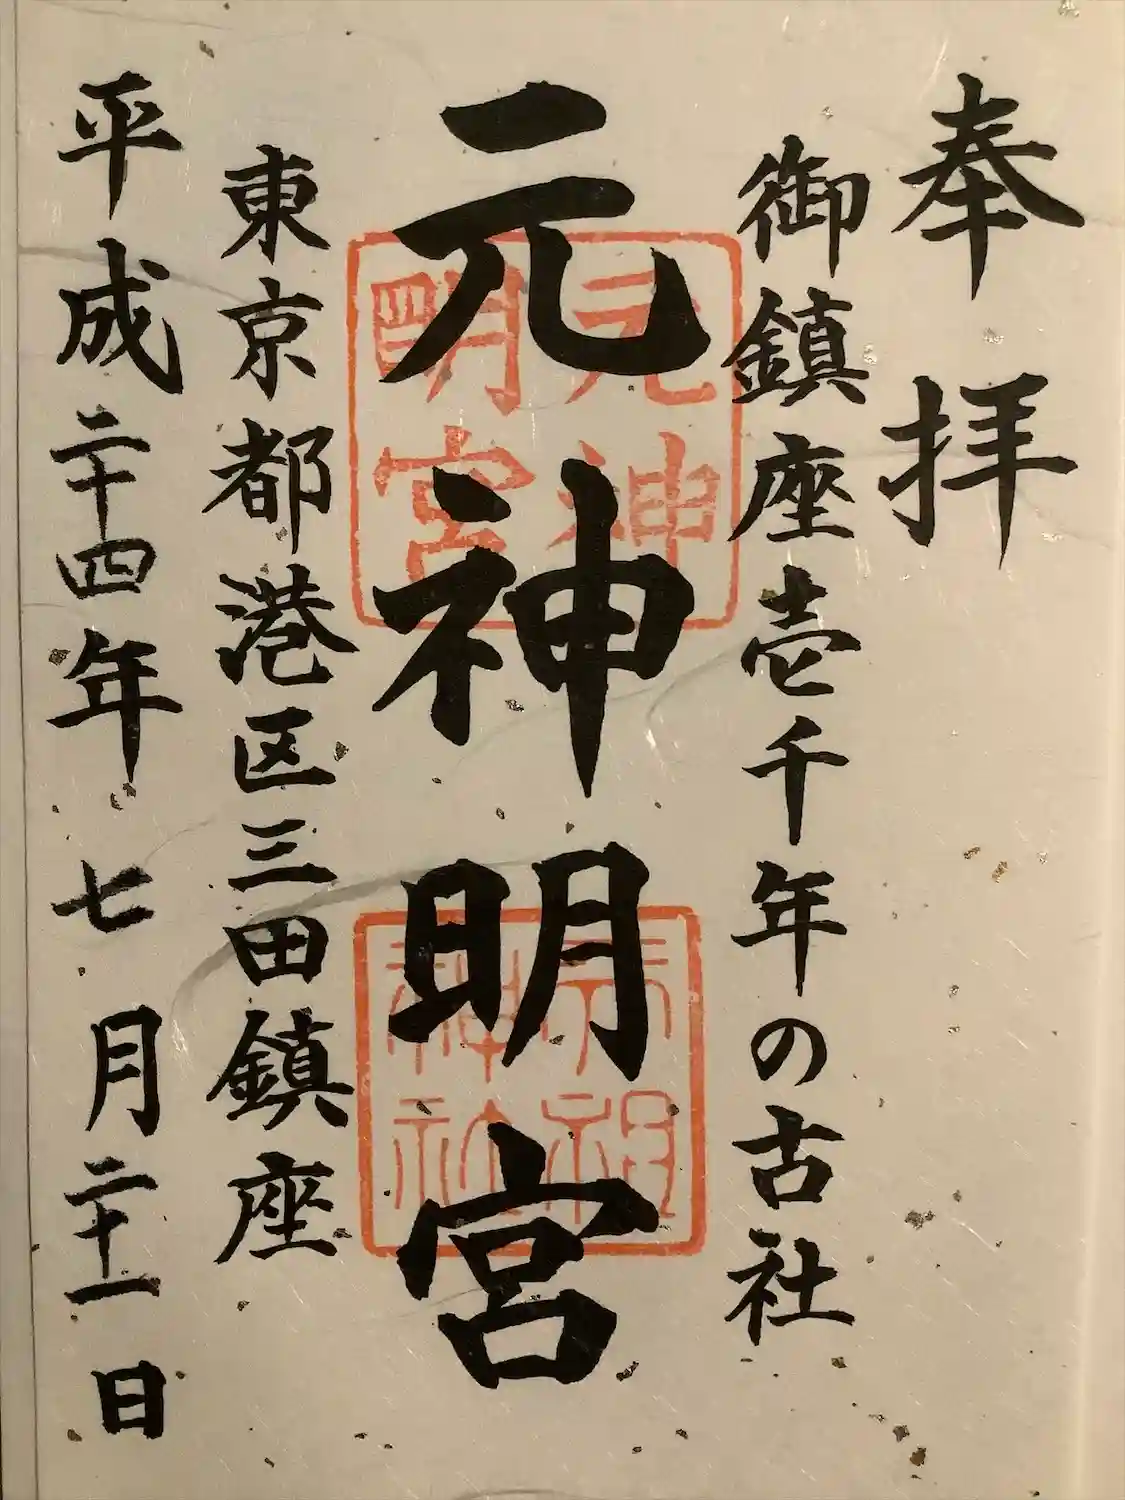 奉拝
御鎮座壱千年の古社
元神明宮
東京都港区三田鎮座
平成二十四年七月二十一日
元神
明宮
神社